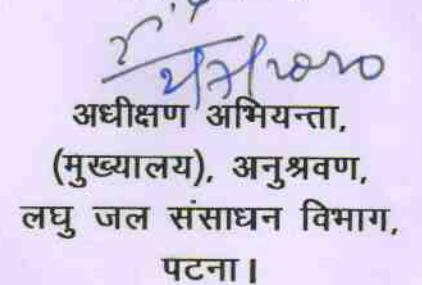 अधीक्षण अभियन्ता,
(मुख्यालय), अनुश्रवण,
लघु जल संसाधन विभाग,
पटना।